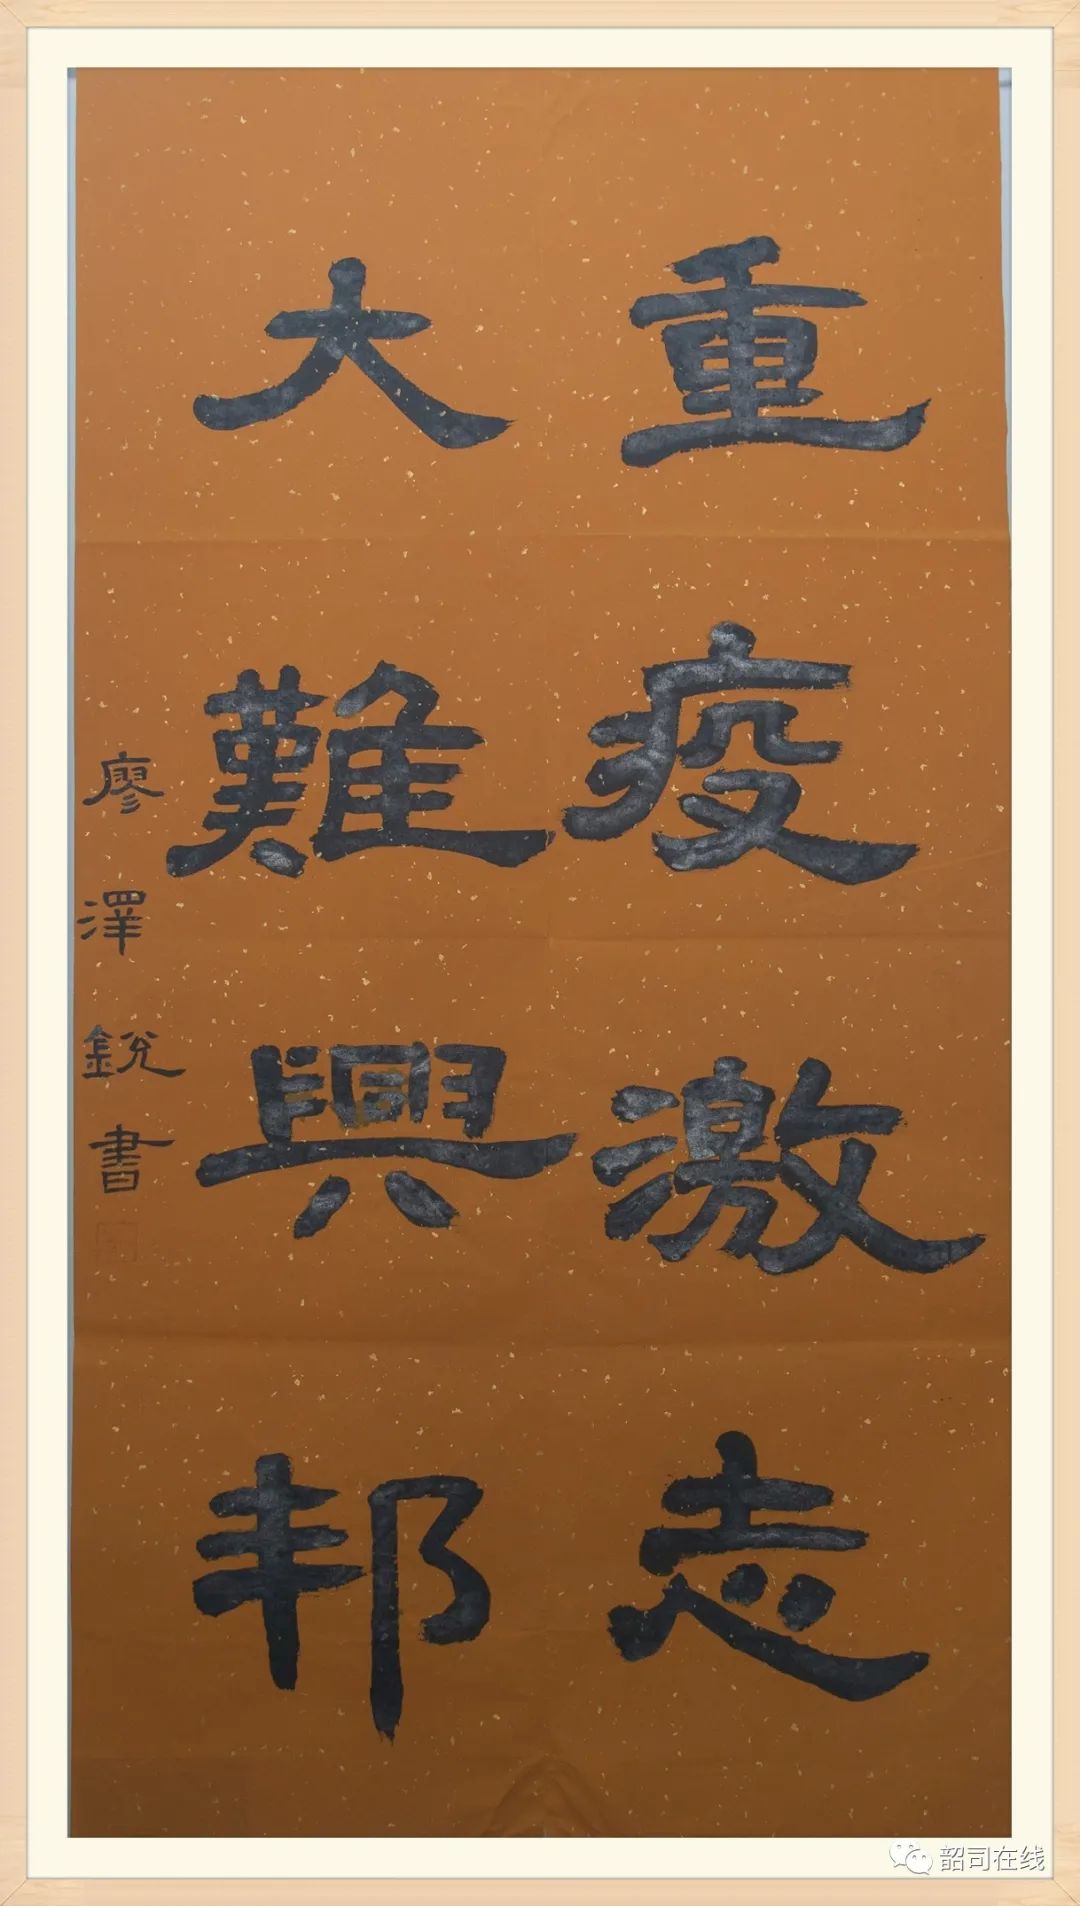 重疫激志
大難興邦
廖澤銳書
韶司在线